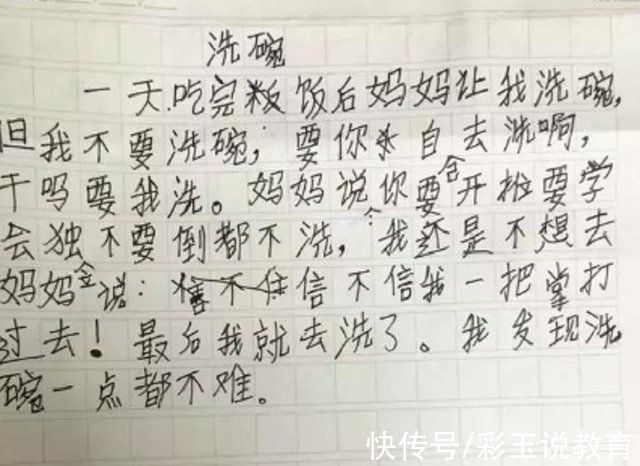 洗碗
一天.吃完粄饭后妈妈让我洗碗,
但我不要洗碗,要你自去洗啊,
干吗要我洗。妈妈说你要会开始要学
会独不要倒都不洗,我还是不想去
妈妈会说:信不信我一把掌打
过去!最后我就去洗了。我发现洗
碗一点都不难。
快传号/彩玉说教育